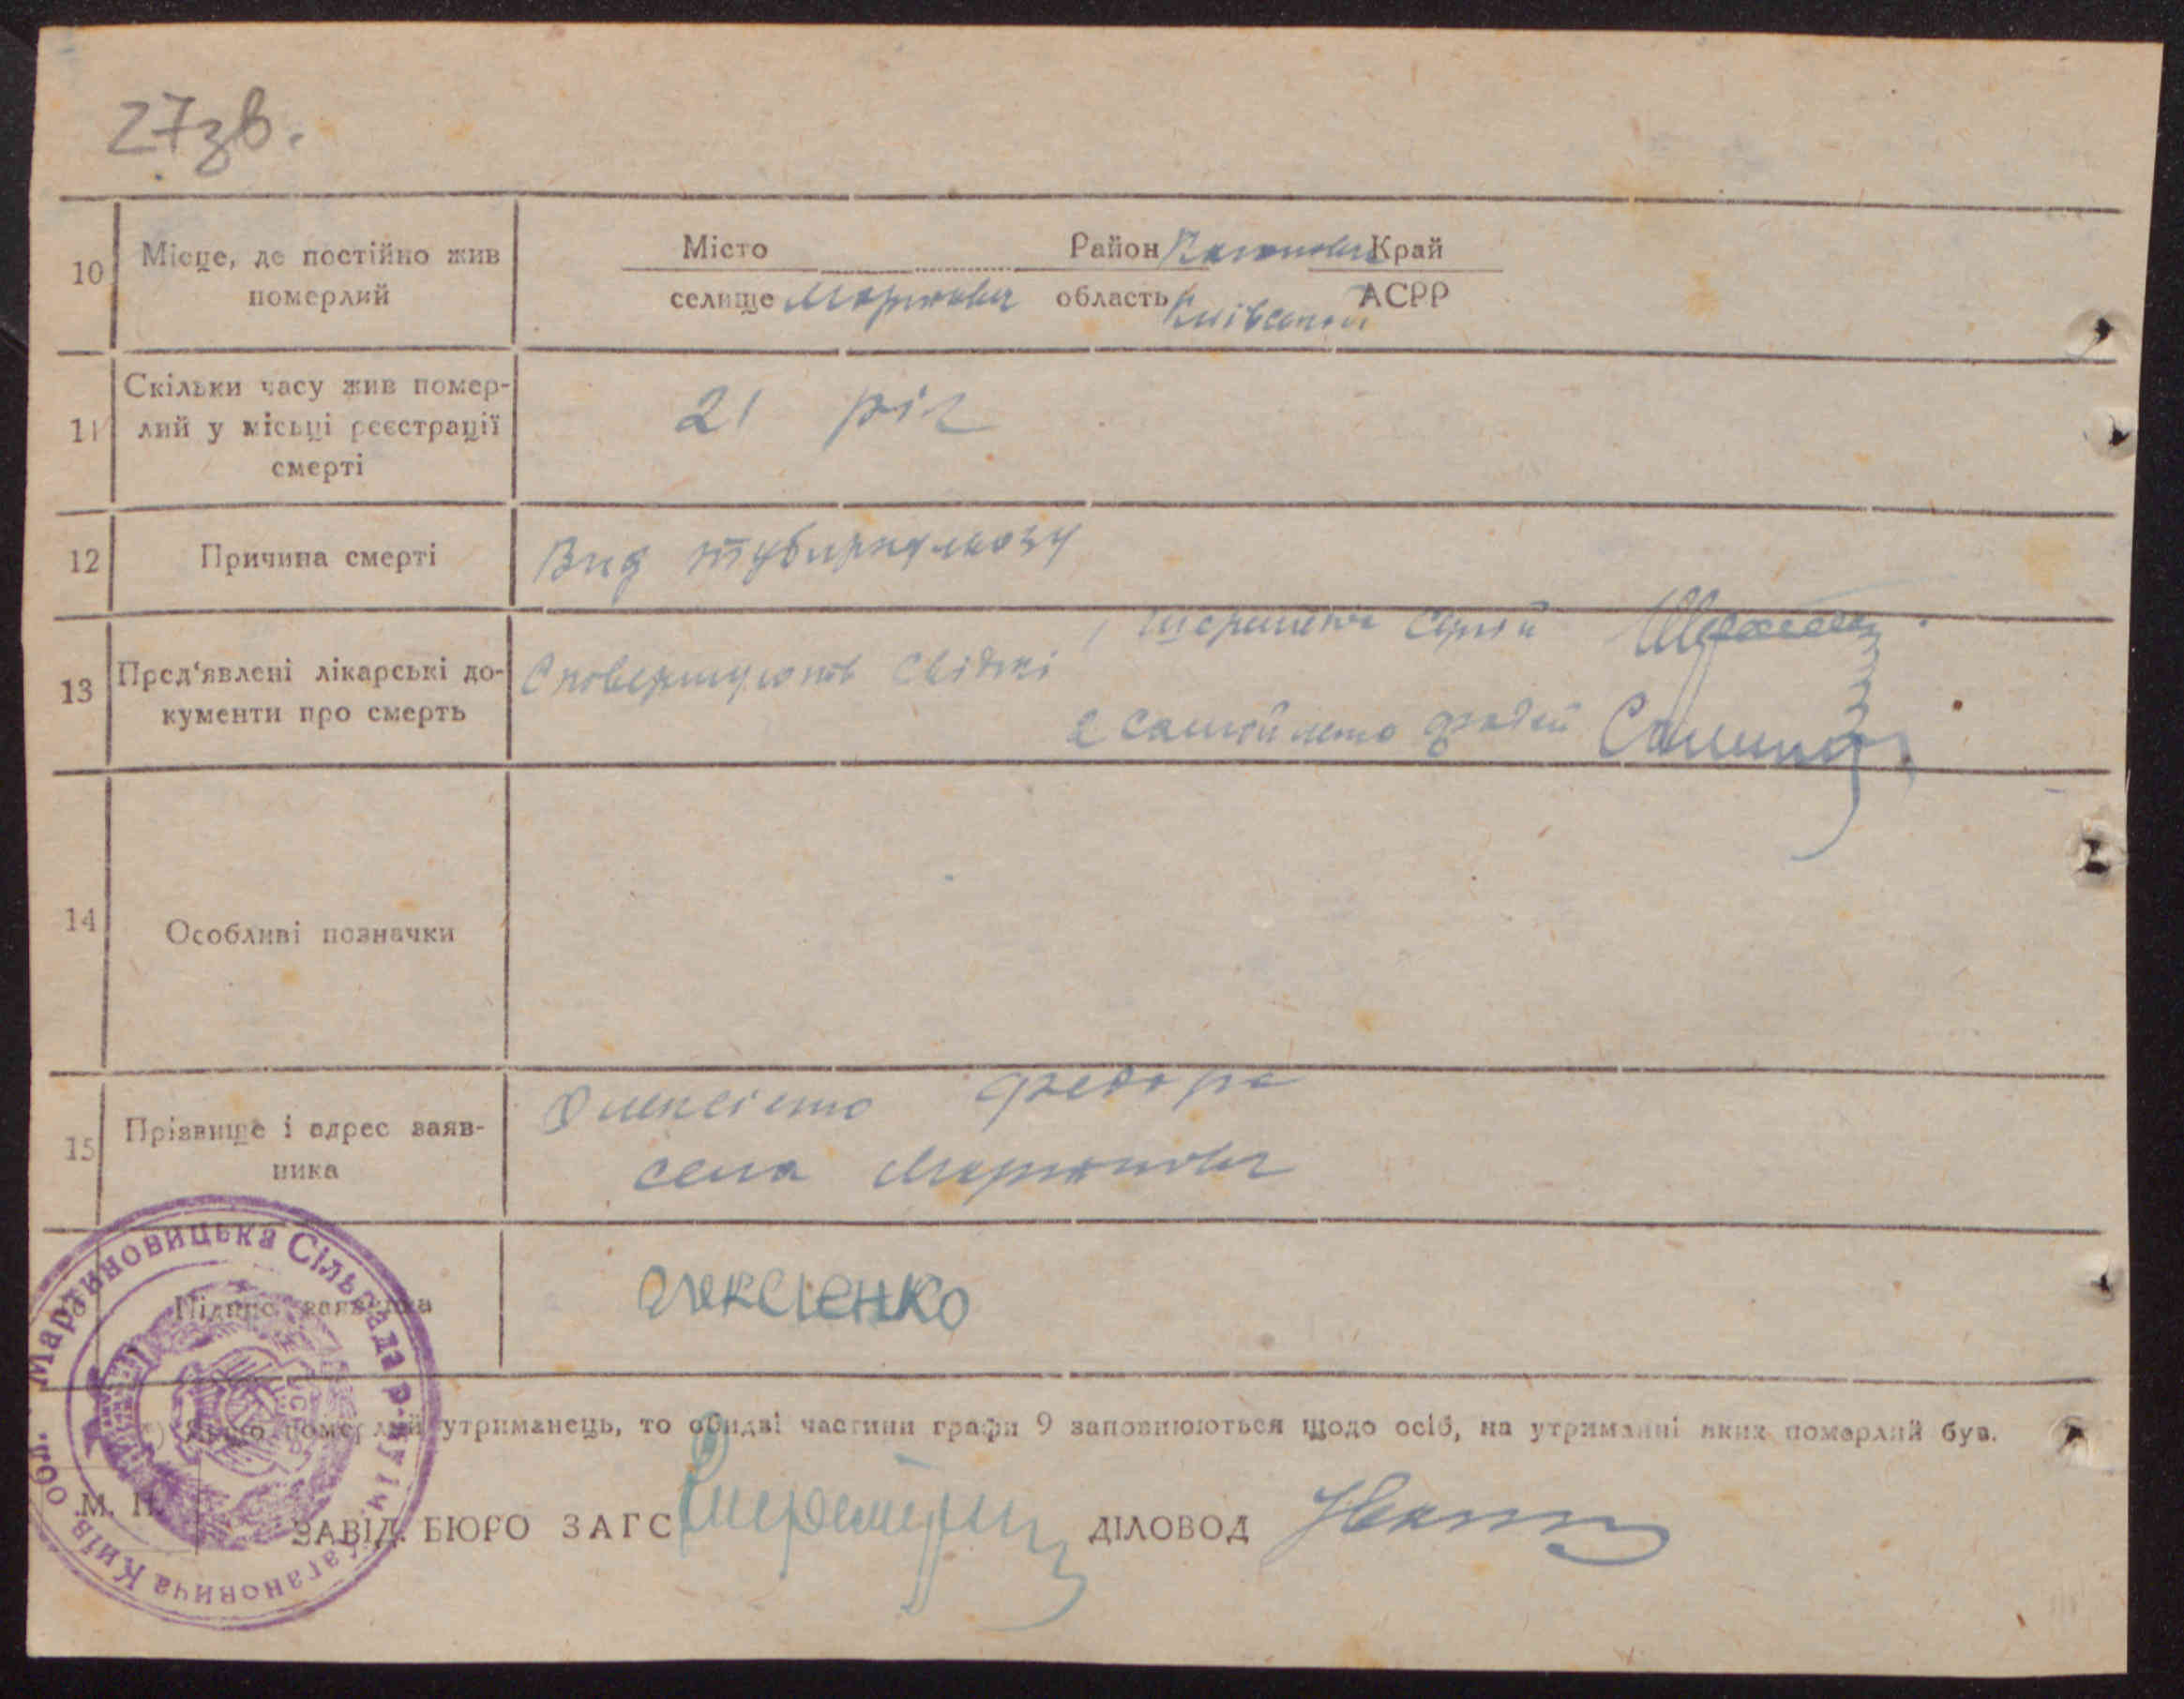 27зв.
10 Місце, де постійно жив померлий
Місто Район Каганович Край
селище Мартинович область Київської АСРР
11 Скільки часу жив померлий у місьці реєстрації смерті
21 рік
12 Причина смерті
Вид тубиркульозу
13 Пред'явлені лікарські документи про смерть
1 Сергій
свідкі
2 Самойленко Фадей
14 Особливі позначки
15 Прізвище і адрес заявника
Олексієнко Федора
села Мартинович
Підпис заявника
олексієнко
Мартиновицька Сільрада р-ну ім. Кагановича Київ. обл.
*) Якщо померлий утриманець, то обидві частини графи 9 заповнюються щодо осіб, на утриманні яких померлий був.
М. П.
ЗАВІД. БЮРО ЗАГС ДІЛОВОД